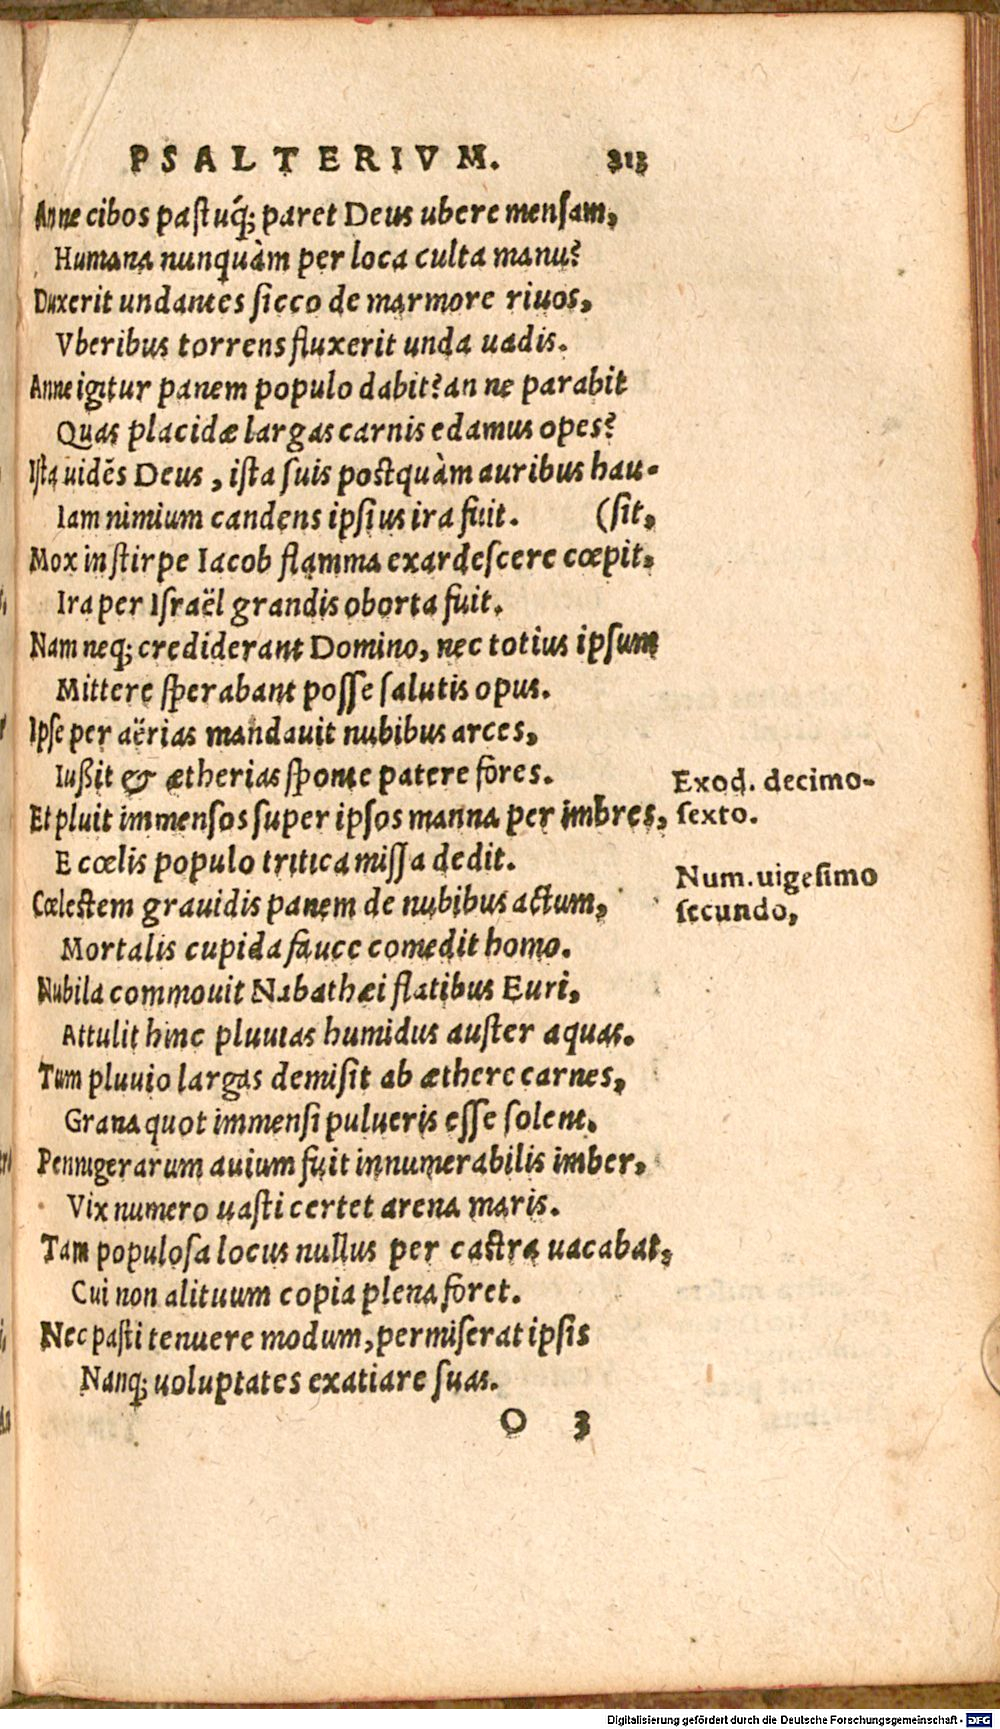 PSALTERIVM. 213
Anne cibos pastuq́; paret Deus ubere mensam,
Humana nunquàm per loca culta manu?
Duxerit undantes sicco de marmore riuos,
Vberibus torrens fluxerit unda uadis.
Anne igitur panem populo dabit? an ne parabit
Quas placidæ largas carnis edamus opes?
Ista uidẽs Deus, ista suis postquàm auribus hau-
Iam nimium candens ipsius ira fuit. (sit,
Mox in stirpe Iacob flamma exardescere cœpit,
Ira per Israël grandis oborta fuit.
Nam neq; crediderant Domino, nec totius ipsum
Mittere sperabant posse salutis opus.
Ipse per aërias mandauit nubibus arces,
Iußit & ætherias sponte patere fores.
Et pluit immensos super ipsos manna per imbres,
E cœlis populo tritica missa dedit.
Cœlestem grauidis panem de nubibus actum,
Mortalis cupida fauce comedit homo.
Nubila commouit Nabathæi flatibus Euri,
Attulit hinc pluuias humidus auster aquas.
Tum pluuio largas demisit ab æthere carnes,
Grana quot immensi pulueris esse solent.
Pennigerarum auium fuit innumerabilis imber,
Vix numero uasti certet arena maris.
Tam populosa locus nullus per castra uacabat,
Cui non alituum copia plena foret.
Nec pasti tenuere modum, permiserat ipsis
Nanq; uoluptates exatiare suas.
O 3
Exod. decimo-
sexto.
Num. uigesimo
secundo,
Digitalisierung gefördert durch die Deutsche Forschungsgemeinschaft - DFG